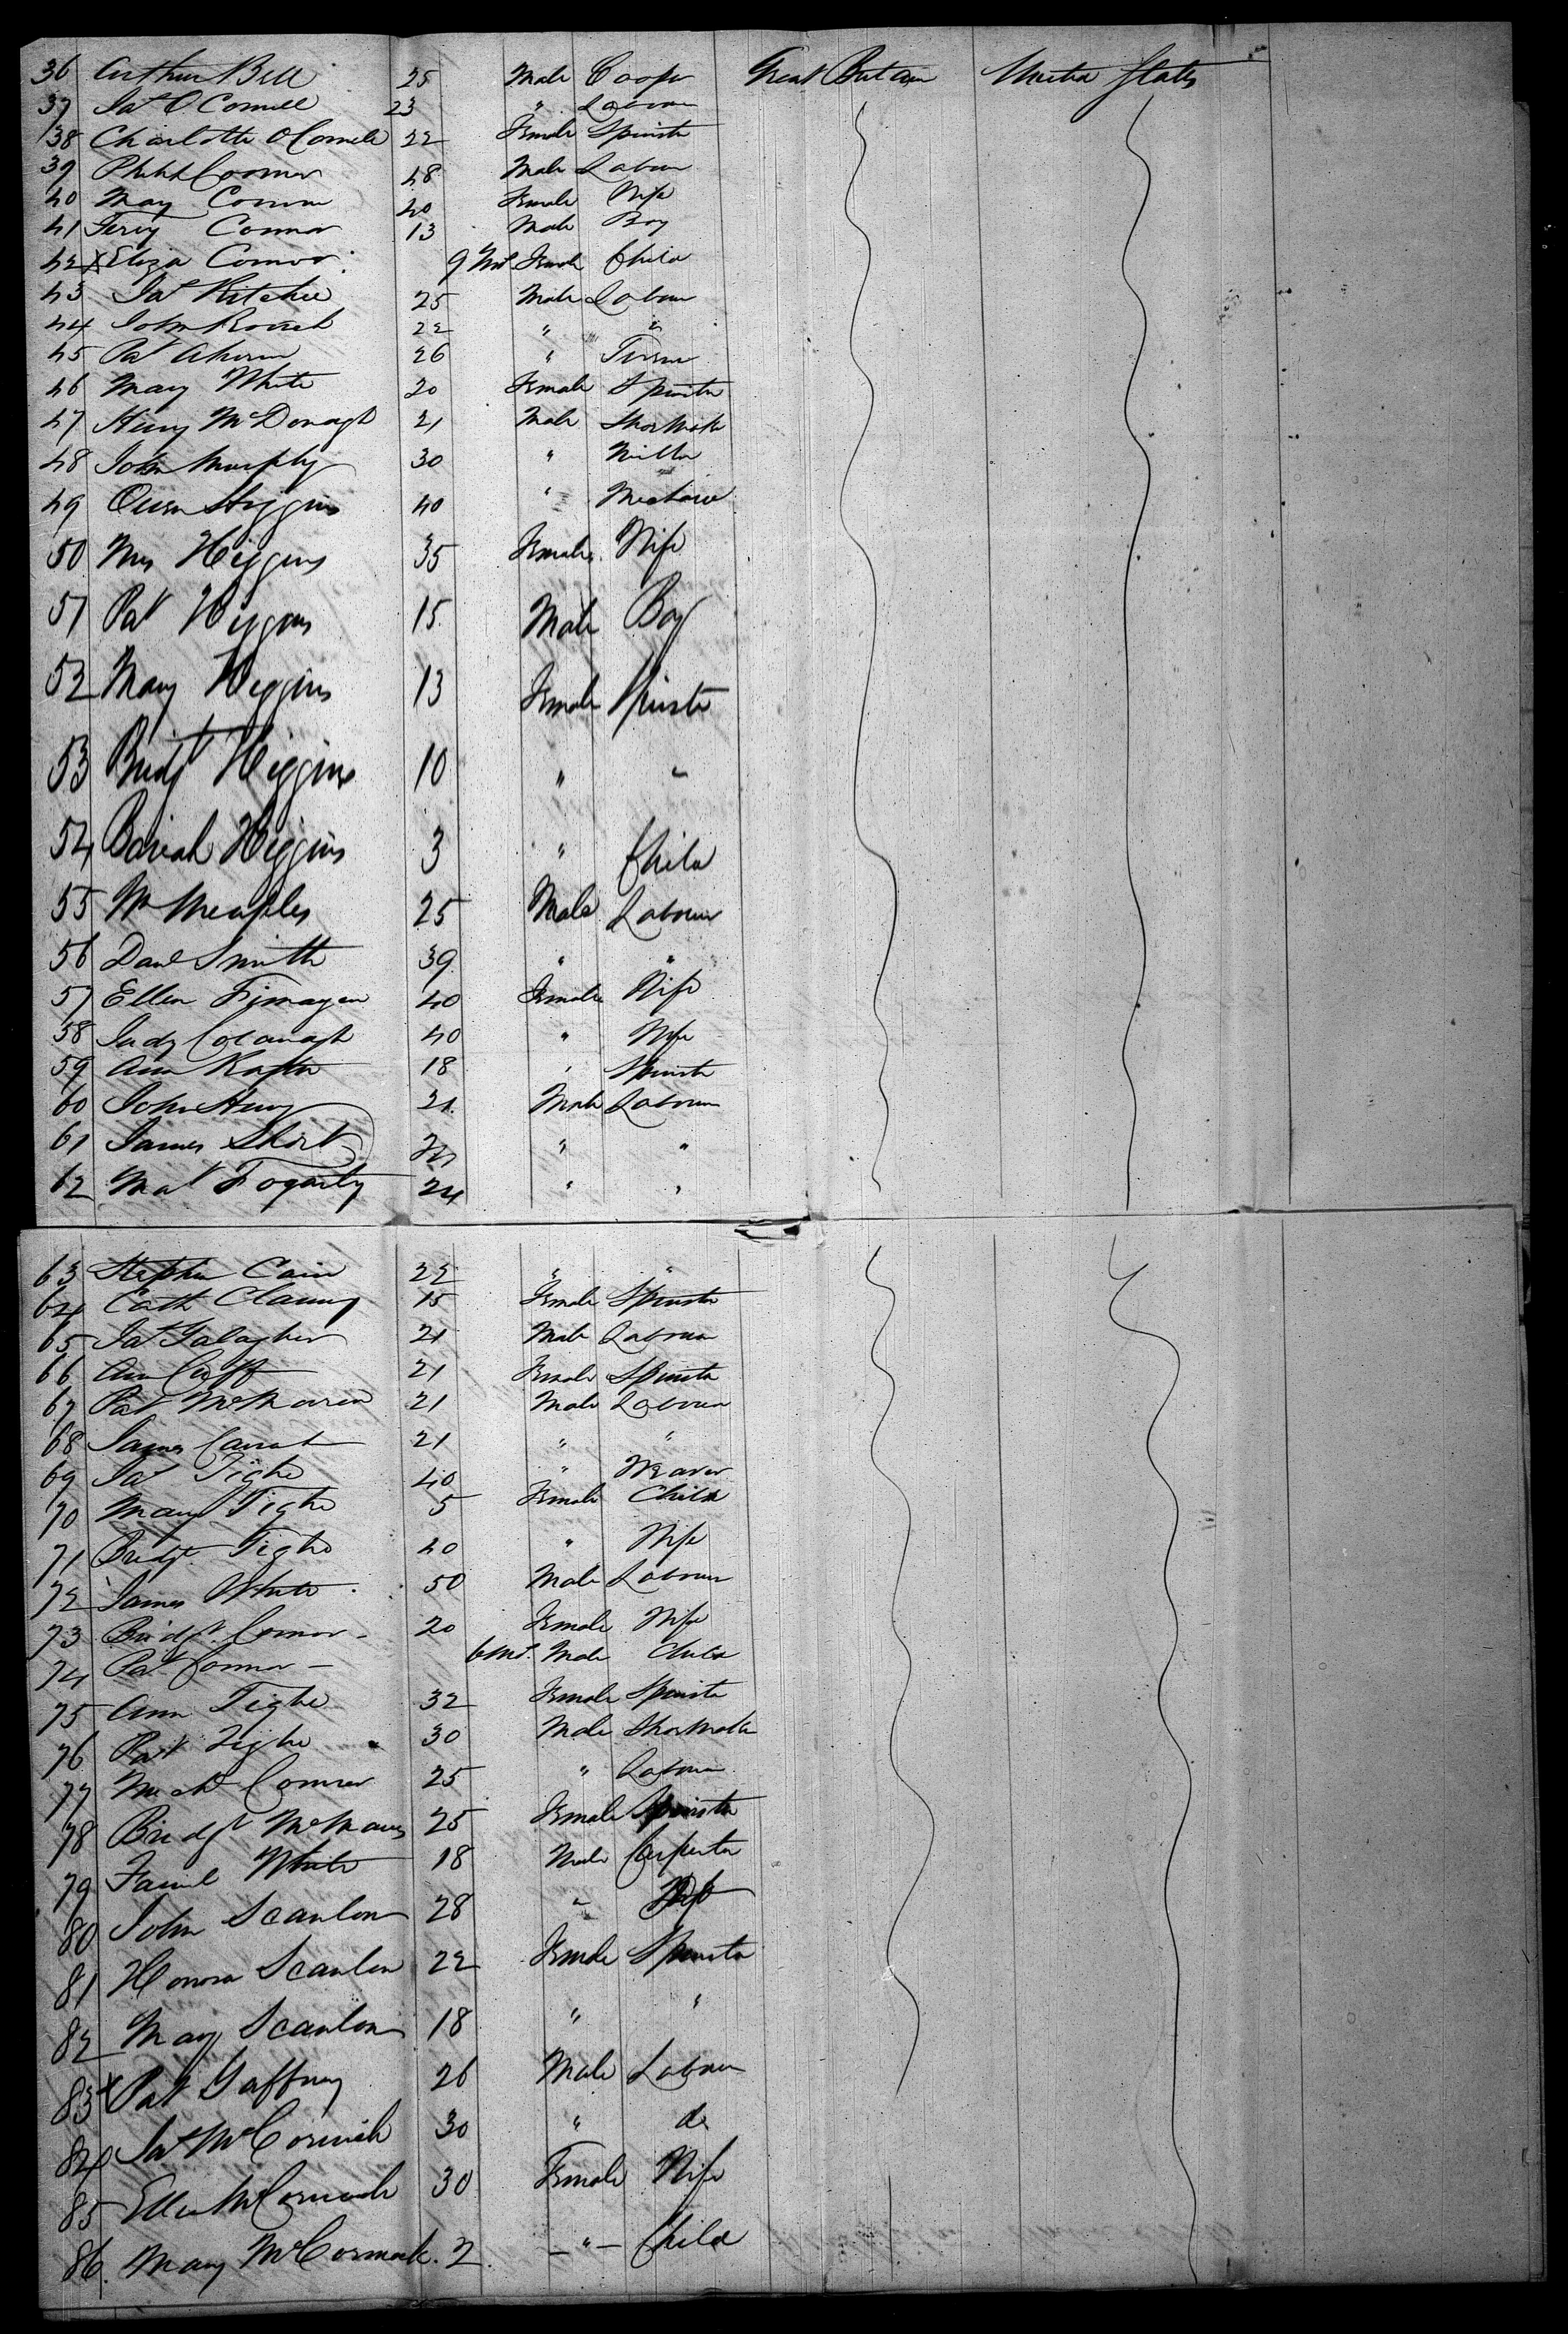 36 Arthur Bell 25 Male Cooper Great Britain United States
37 Jas O'Connell 23 " Labour
38 Charlotte O'Connell 22 Female Spinster
39 Connor 48 Male Labour
40 Mary Connor 40 Female Wife
41 Connor 13 Male Boy
42 X Eliza Connor 9 Mos Female Child
43 Jas Ritchie 25 Male Labour
44 John 22 " "
45 Pat Ahern 26 "
46 Mary White 20 Female Spinster
47 Henry McDonagh 21 Male Shoemaker
48 John Murphy 30 " Miller
49 Owen Higgins 40 "
50 Mrs Higgins 35 Female Wife
51 Pat Higgins 15 Male Boy
52 Mary Higgins 13 Female Spinster
53 Bridgt Higgins 10 " "
54 Higgins 3 " Child
55 Wm 25 Male Labour
56 Danl Smith 39 " "
57 Ellen 40 Female Wife
58 Judy Cavanagh 40 " Wife
59 Ann 18 " Spinster
60 John Henry 21 Male Labour
61 James Short " "
62 Mat Fogarty 24 " "
63 Stephen Cain 22 " "
64 Cath Clancy 15 Female Spinster
65 Jas Galagher 21 Male Labour
66 Ann 21 Female Spinster
67 Pat 21 Male Labour
68 James 21 " "
69 Jas Tighe 40 " Weaver
70 Mary Tighe 5 Female Child
71 Bridgt Tighe 40 " Wife
72 James White 50 Male Labour
73 Bridgt Connor 20 Female Wife
74 Pat Connor 6 Mos. Male Child
75 Ann Tighe 32 Female Spinster
76 Pat Tighe 30 Male Shoemaker
77 Mich Connor 25 " Labour
78 Bridgt McManus 25 Female Spinster
79 White 18 Male Carpenter
80 John Scanlon 28 "
81 Honora Scanlon 22 Female Spinster
82 Mary Scanlon 18 " "
83 X Pat Gaffney 26 Male Labour
84 Jas McCormick 30 " do
85 Ellen McCormick 30 Female Wife
86. Mary McCormack. 2 " Child